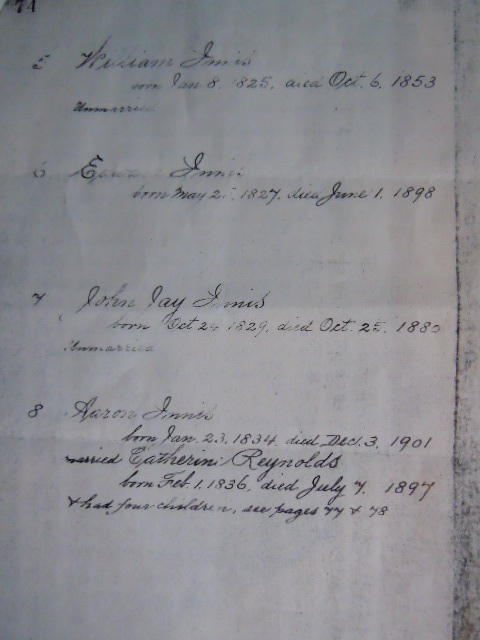 74
5 William Innis
born Jan 8, 1825, died Oct. 6, 1853
Unmarried
6 Innis
born May 1827, died June 1, 1898
7 John Jay Innis
born Oct 24 1829, died Oct. 25,
Unmarried
8 Aaron Innis
born Jan. 23, 1834, died Dec. 3, 1901
married Catherine Reynolds
born Feb 1, 1836, died July 7, 1897
& had four children, see pages 77 & 78